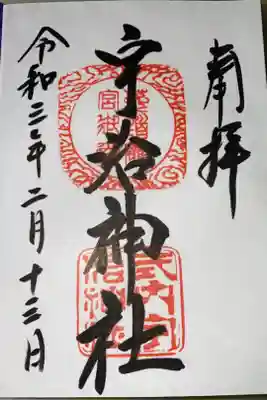 奉拝
宇治神社
令和三年二月十三日